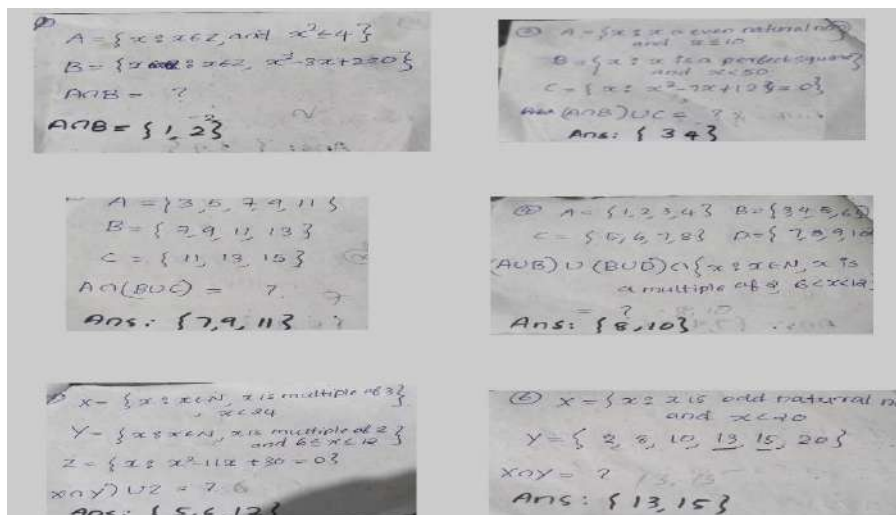 A = {x : x ∈ Z, and x² ≤ 4}
B = {x : x ∈ Z, x² - 3x + 2 = 0}
A∩B = ?
A∩B = {1, 2}
② A = {x : x is even natural no}
and x ≤ 10
B = {x : x is a perfect square}
and x < 50
C = {x : x² - 7x + 12} = 0}
(A∩B) ∪ C = ?
Ans: { 3 4 }
A = {3, 5, 7, 9, 11}
B = {7, 9, 11, 13}
C = {11, 13, 15}
A∩(B∪C) = ?
Ans: {7, 9, 11}
④ A = {1, 2, 3, 4} B = {3 4, 5, 6}
C = {5, 6, 7, 8} D = {7, 8, 9, 10
(A∪B) ∪ (B∪D) ∩ {x : x ∈ N, x is
a multiple of 2 6 < x < 12
= ?
Ans: {8, 10}
X = {x : x ∈ N, x is multiple of 3}
, x < 24
Y = {x : x ∈ N, x is multiple of 2}
and 6 ≤ x ≤ 12}
Z = {x : x² - 11x + 30 = 0}
X∩Y) ∪ Z = ?
Ans: {5, 6, 12}
⑥ X = {x : x is odd natural n
and x < 20
Y = { 2, 8, 10, 13, 15, 20}
X∩Y = ?
Ans: {13, 15}